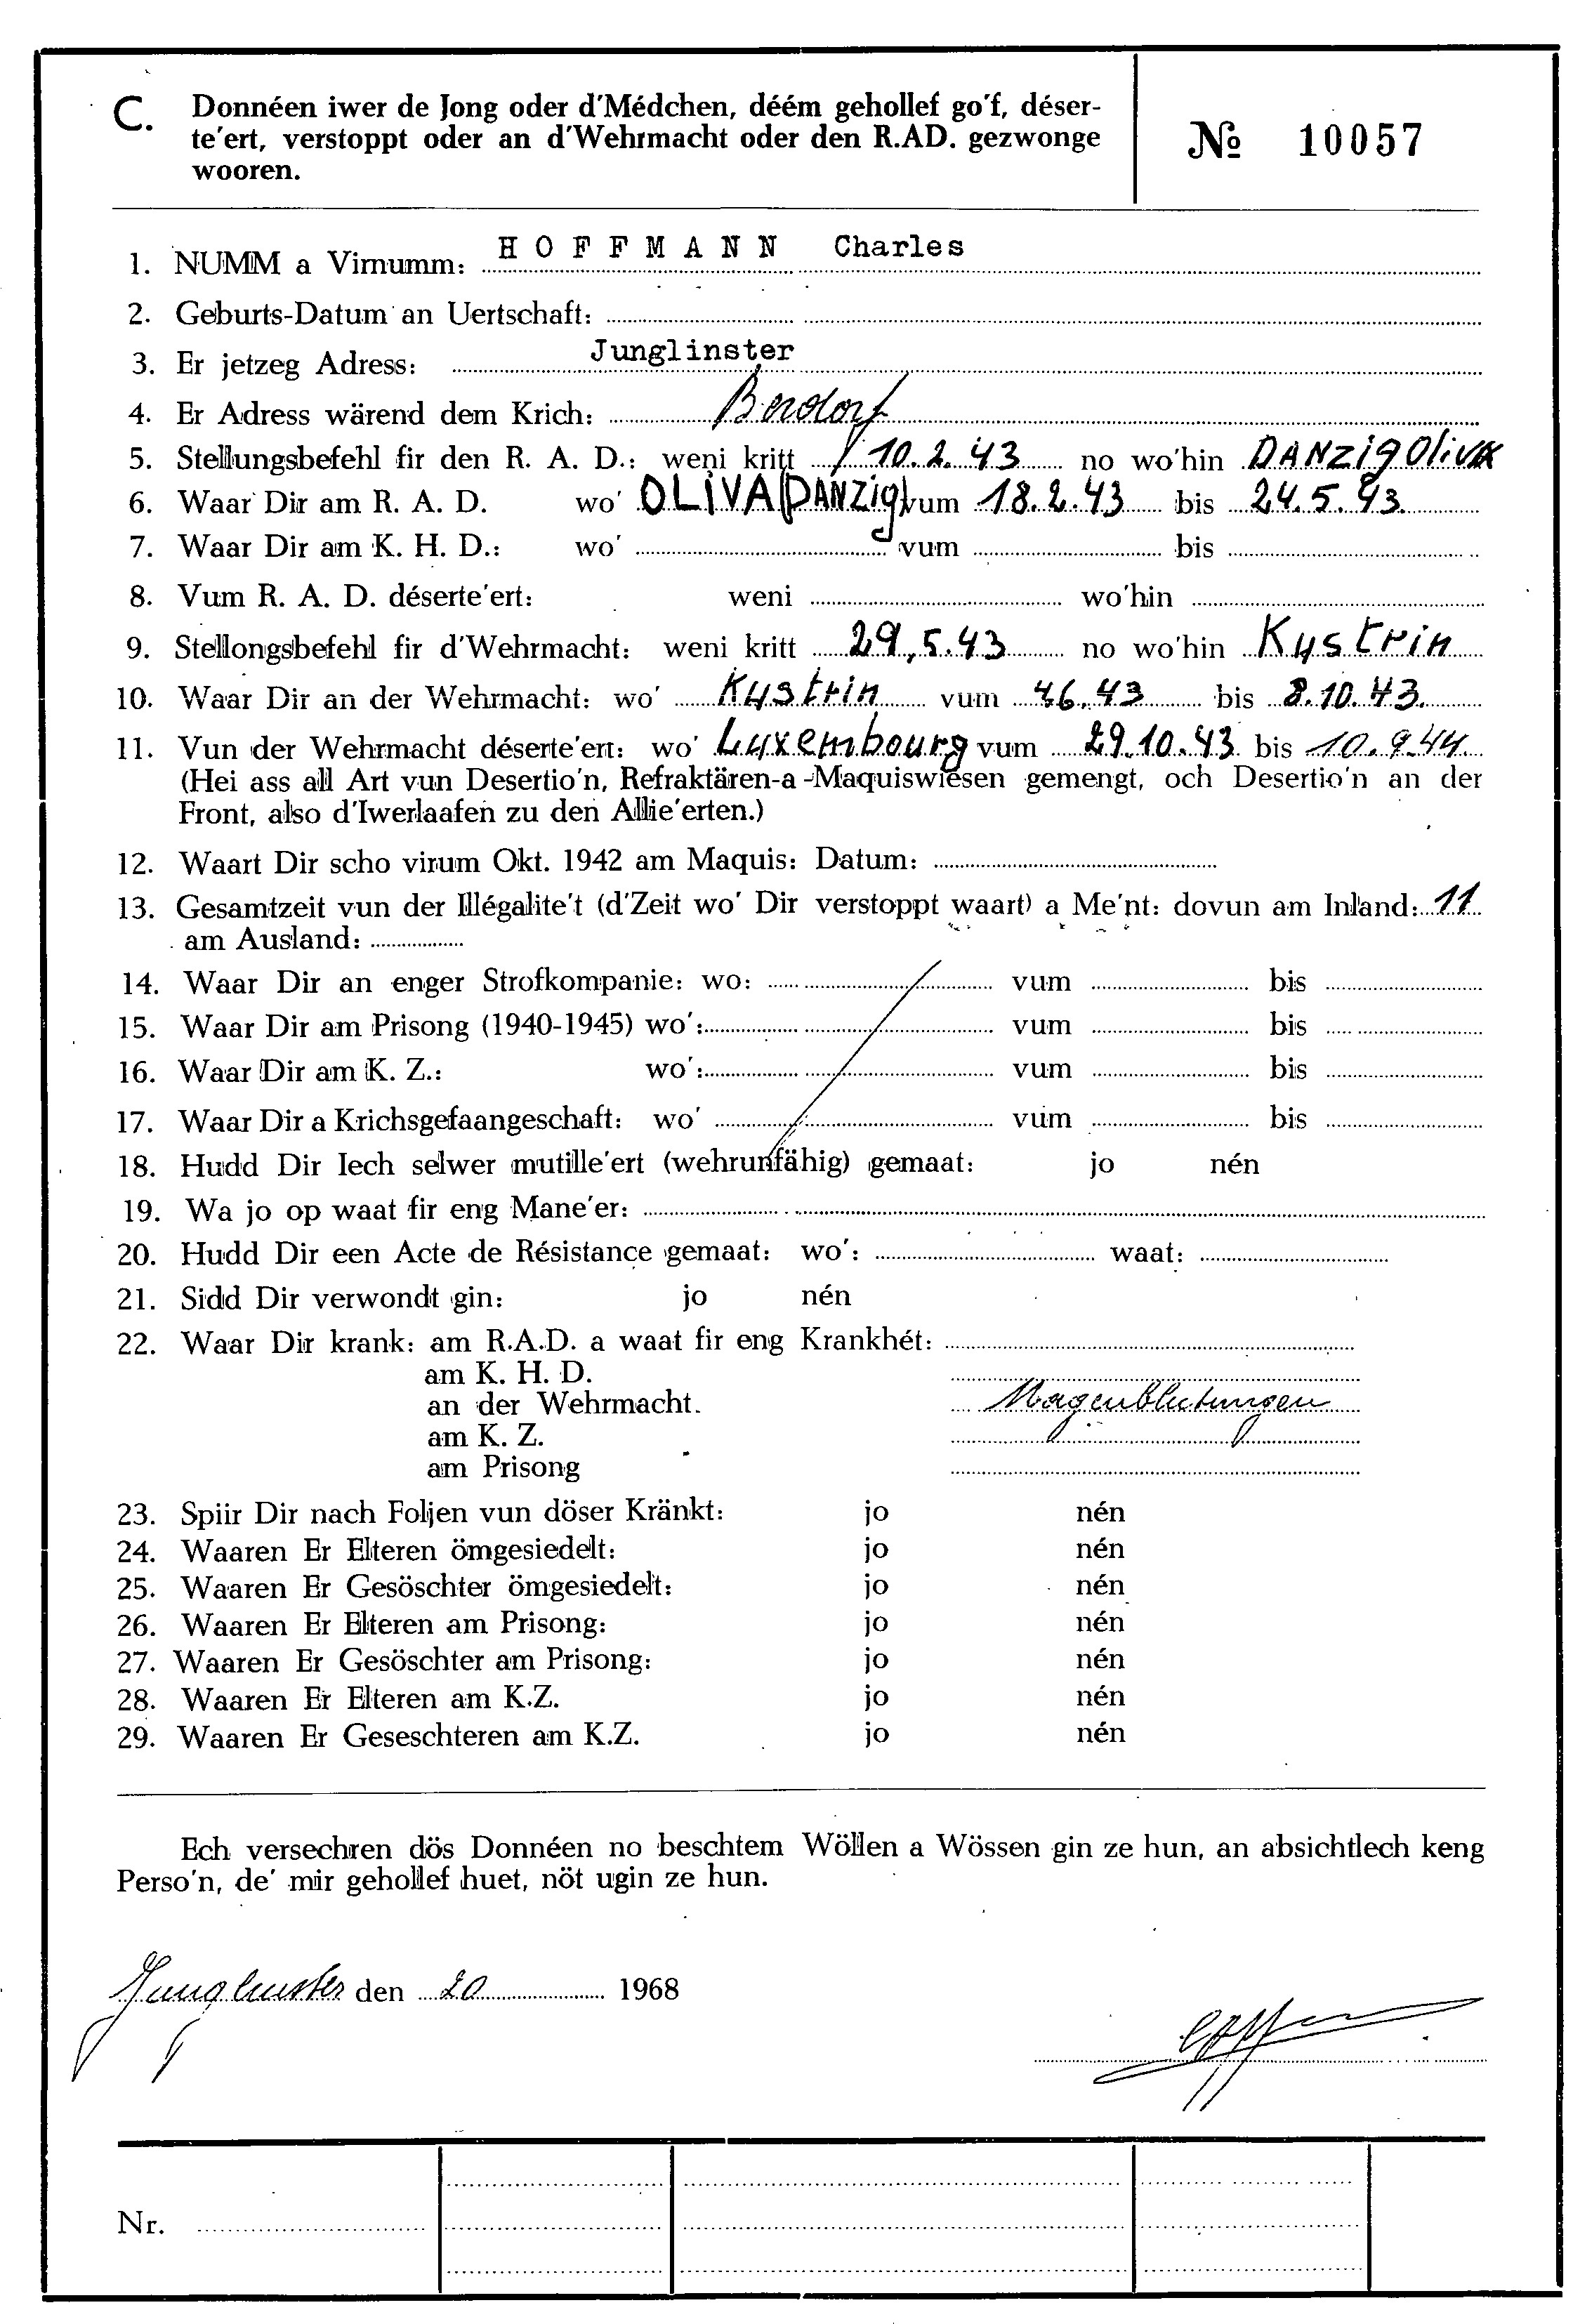 C. Donnéen iwer de Jong oder d'Médchen, déém gehollef go'f, déser-
te'ert, verstoppt oder an d'Wehrmacht oder den R.AD. gezwonge
wooren.
№ 10057
1. NUMM a Virnumm: HOFFMANN Charles
2. Geburts-Datum an Uertschaft:
3. Er jetzeg Adress: Junglinster
4. Er Adress wärend dem Krich: Berdorf
5. Stellungsbefehl fir den R. A. D.: weni kritt 10.2.43 no wo'hin DANZig Oliva
6. Waar Dir am R. A. D. wo' OLiVA (DANZig) vum 18.2.43 bis 24.5.43.
7. Waar Dir am K. H. D.: wo' vum bis
8. Vum R. A. D. déserte'ert: weni wo'hin
9. Stellongsbefehl fir d'Wehrmacht: weni kritt 29.5.43 no wo'hin Kystrin
10. Waar Dir an der Wehrmacht: wo' Kystrin vum 4.6.43 bis 8.10.43.
11. Vun der Wehrmacht déserte'ert: wo' Luxembourg vum 29.10.43 bis 10.9.44
(Hei ass all Art vun Desertio'n, Refraktären-a-Maquiswiesen gemengt, och Desertio'n an der
Front, also d'Iwerlaafen zu den Allie'erten.)
12. Waart Dir scho virum Okt. 1942 am Maquis: Datum:
13. Gesamtzeit vun der Illégalite't (d'Zeit wo' Dir verstoppt waart) a Me'nt: dovun am Inland: 11
am Ausland:
14. Waar Dir an enger Strofkompanie: wo: vum bis
15. Waar Dir am Prisong (1940-1945) wo': vum bis
16. Waar Dir am K. Z.: wo': vum bis
17. Waar Dir a Krichsgefaangeschaft: wo' vum bis
18. Hudd Dir Iech selwer mutille'ert (wehrunfähig) gemaat: jo nén
19. Wa jo op waat fir eng Mane'er:
20. Hudd Dir een Acte de Résistance gemaat: wo': waat:
21. Sidd Dir verwondt gin: jo nén
22. Waar Dir krank: am R.A.D. a waat fir eng Krankhét:
am K. H. D.
an der Wehrmacht. Magenblutungen
am K. Z.
am Prisong
23. Spiir Dir nach Foljen vun döser Kränkt: jo nén
24. Waaren Er Elteren ömgesiedelt: jo nén
25. Waaren Er Gesöschter ömgesiedelt: jo nén
26. Waaren Er Elteren am Prisong: jo nén
27. Waaren Er Gesöschter am Prisong: jo nén
28. Waaren Er Elteren am K.Z. jo nén
29. Waaren Er Geseschteren am K.Z. jo nén
Ech versechren dös Donnéen no beschtem Wöllen a Wössen gin ze hun, an absichtlech keng
Perso'n, de' mir gehollef huet, nöt ugin ze hun.
Junglinster den 20 1968
Nr.